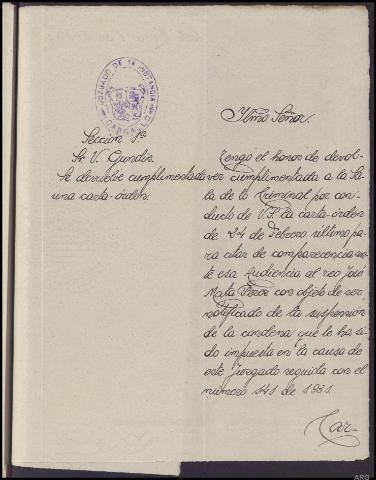 JUZGADO DE 1ª INSTANCIA
CARBALLO
Sección 1ª
Sr. V. Gundín
Se devuelve cumplimentada
una carta-órden.
Iltmo Señor.
Tengo el honor de devol-
ver cumplimentada a la Sa-
la de lo Criminal por con-
ducto de V.I. la carta-órden
de 24 de Febrero último pa-
ra citar de comparecencia an-
te esa Audiencia al reo José
Mata Peros con objeto de ser
notificado de la suspensión
de la condena que le ha si-
do impuesta en la causa de
este Juzgado seguida con el
número 141 de 1931.
Car-
ARG